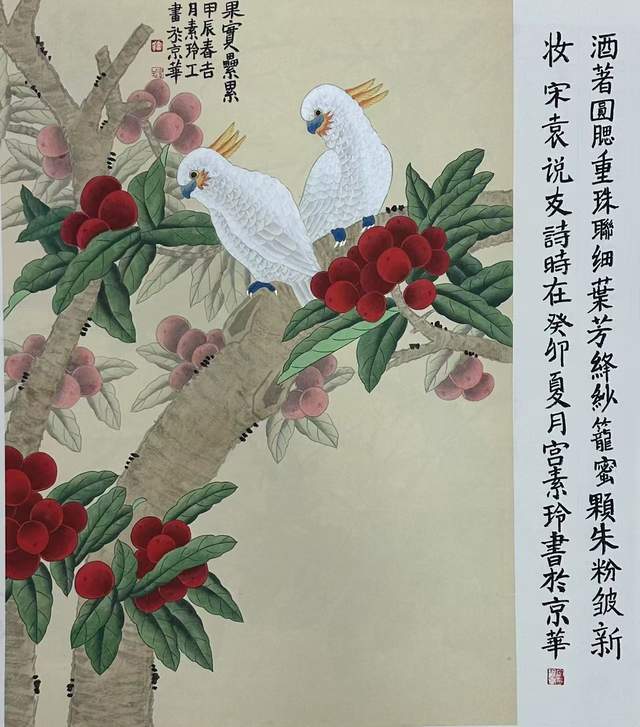 酒著圓腮重珠聯細葉芳絳紗籠蜜顆朱粉皱新
妆 宋袁说友詩時在癸卯夏月宫素玲書於京華
果實壘累
甲辰春吉
月素玲工
書於京華